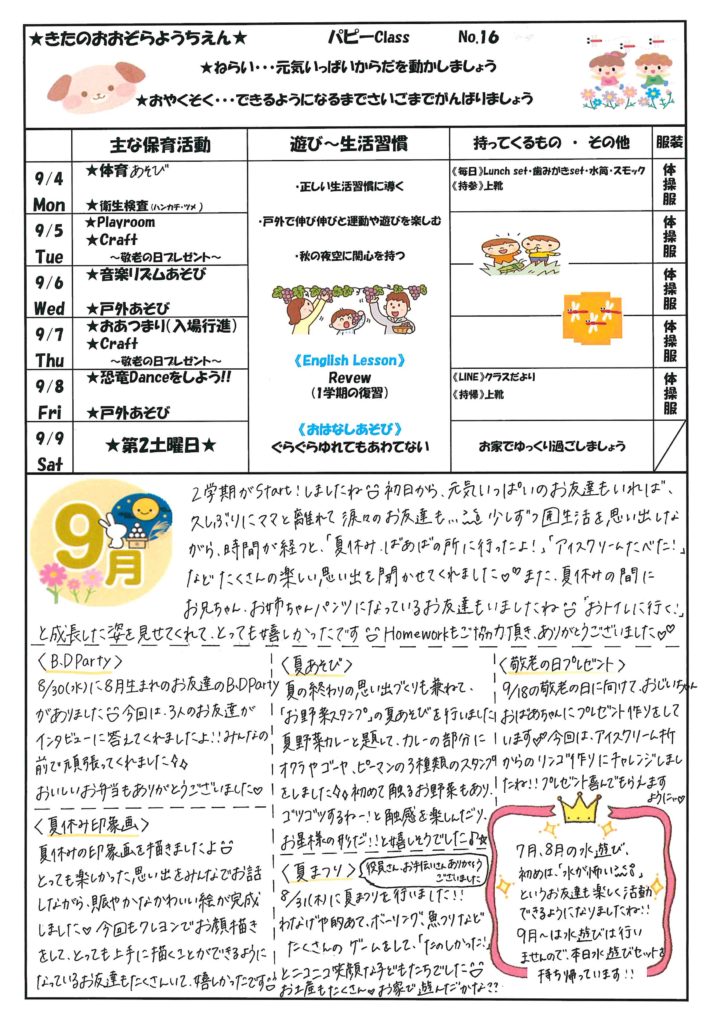 ★きたのおおぞらようちえん★ パピーClass No.16
★ねらい・・・元気いっぱいからだを動かしましょう
★おやくそく・・・できるようになるまでさいごまでがんばりましょう
主な保育活動 遊び～生活習慣 持ってくるもの ・ その他 服装
9/4 Mon
★体育あそび
★衛生検査(ハンカチ・ツメ)
9/5 Tue
★Playroom
★Craft
～敬老の日プレゼント～
9/6 Wed
★音楽リズムあそび
★戸外あそび
9/7 Thu
★おあつまり(入場行進)
★Craft
～敬老の日プレゼント～
9/8 Fri
★恐竜Danceをしよう!!
★戸外あそび
9/9 Sat
★第2土曜日★
・正しい生活習慣に導く
・戸外で伸び伸びと運動や遊びを楽しむ
・秋の夜空に関心を持つ
《English Lesson》
Revew
(1学期の復習)
《おはなしあそび》
ぐらぐらゆれてもあわてない
《毎日》Lunch set・歯みがきset・水筒・スモック
《持参》上靴
《LINE》クラスだより
《持帰》上靴
お家でゆっくり過ごしましょう
体操服
体操服
体操服
体操服
体操服
9月
2学期がStart!しましたね 初日から、元気いっぱいのお友達もいれば、
久しぶりにママと離れて涙々のお友達も… 少しずつ園生活を思い出しな
がら、時間が経つと、「夏休み、ばあばの所に行ったよ!」「アイスクリームたべた!」
などたくさんの楽しい思い出を聞かせてくれました♡♡また、夏休みの間に
お兄ちゃん、お姉ちゃんパンツになっているお友達もいましたね "おトイレに行く!"
と成長した姿を見せてくれて、とっても嬉しかったです Homeworkもご協力頂き、ありがとうございました♡♡
〈B.D Party〉
8/30(水)に8月生まれのお友達のB.D Party
がありました 今回は、3人のお友達が
インタビューに答えてくれましたよ!!みんなの
前で頑張ってくれました
おいしいお弁当もありがとうございました♡
〈夏休み印象画〉
夏休みの印象画を描きましたよ
とっても楽しかった思い出をみんなでお話
しながら、賑やかなかわいい絵が完成
しました♡今回もクレヨンでお顔描き
をして、とっても上手に描くことができるように
なっているお友達もたくさんいて、嬉しかったです
〈夏あそび〉
夏の終わりの思い出づくりも兼ねて、
「お野菜スタンプ」の夏あそびを行いました
夏野菜カレーと題して、カレーの部分に
オクラやゴーヤ、ピーマンの3種類のスタンプ
をしました 初めて触るお野菜もあり、
ゴツゴツするねー!と触感を楽しんだり、
お星様の形だ!!と嬉しそうでした♪☆
〈夏まつり〉 役員さん、お手伝いさんありがとうございました
8/31(木)に夏まつりを行いました!!
わなげや的あて、ボーリング、魚つりなど
たくさんのゲームをして、「たのしかった!」
とニコニコ笑顔な子どもたちでした
お土産もたくさん♡お家で遊んだかな??
〈敬老の日プレゼント〉
9/18の敬老の日に向けて、おじいちゃん
おばあちゃんにプレゼント作りをして
います♡今回は、アイスクリーム折
からのリンゴ作りにチャレンジしまし
たね!!プレゼント喜んでもらえます
ように〜♡
7月、8月の水遊び、
初めは、「水が怖い…」
というお友達も楽しく活動
できるようになりましたね!!
9月〜は水遊びは行い
ませんので、本日水遊びセットを
持ち帰っています!!